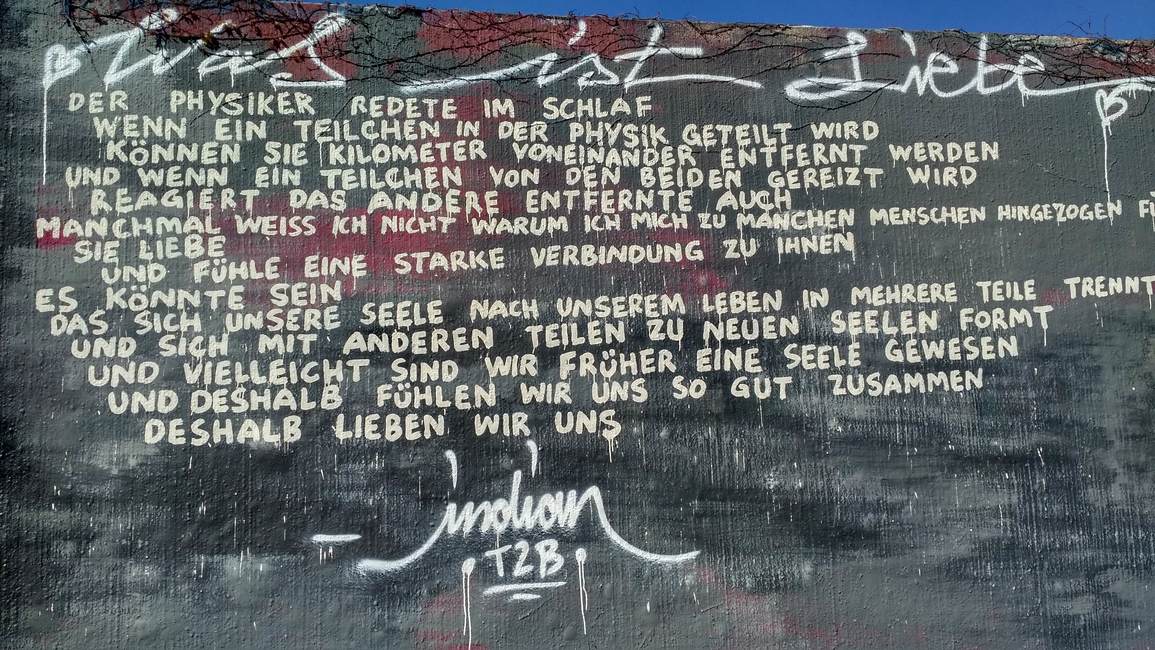 Was ist Liebe
DER PHYSIKER REDETE IM SCHLAF
WENN EIN TEILCHEN IN DER PHYSIK GETEILT WIRD
KÖNNEN SIE KILOMETER VONEINANDER ENTFERNT WERDEN
UND WENN EIN TEILCHEN VON DEN BEIDEN GEREIZT WIRD
REAGIERT DAS ANDERE ENTFERNTE AUCH
MANCHMAL WEISS ICH NICHT WARUM ICH MICH ZU MANCHEN MENSCHEN HINGEZOGEN
SIE LIEBE
UND FÜHLE EINE STARKE VERBINDUNG ZU IHNEN
ES KÖNNTE SEIN
DAS SICH UNSERE SEELE NACH UNSEREM LEBEN IN MEHRERE TEILE TRENNT
UND SICH MIT ANDEREN TEILEN ZU NEUEN SEELEN FORMT
UND VIELLEICHT SIND WIR FRÜHER EINE SEELE GEWESEN
UND DESHALB FÜHLEN WIR UNS SO GUT ZUSAMMEN
DESHALB LIEBEN WIR UNS
indian
T2B